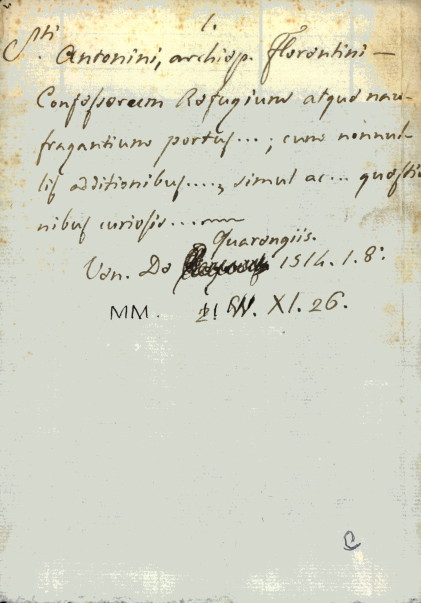 1.
Sti
Antonini, archiep. Florentini —
Confessorum Refugium atque nau-
fragantium portus...; cum nonnul-
lis additionibus..., simul ac... questio
nibus curiosis...
Quarengiis.
Ven. De 1514. 1. 8°.
MM. W. XI. 26.